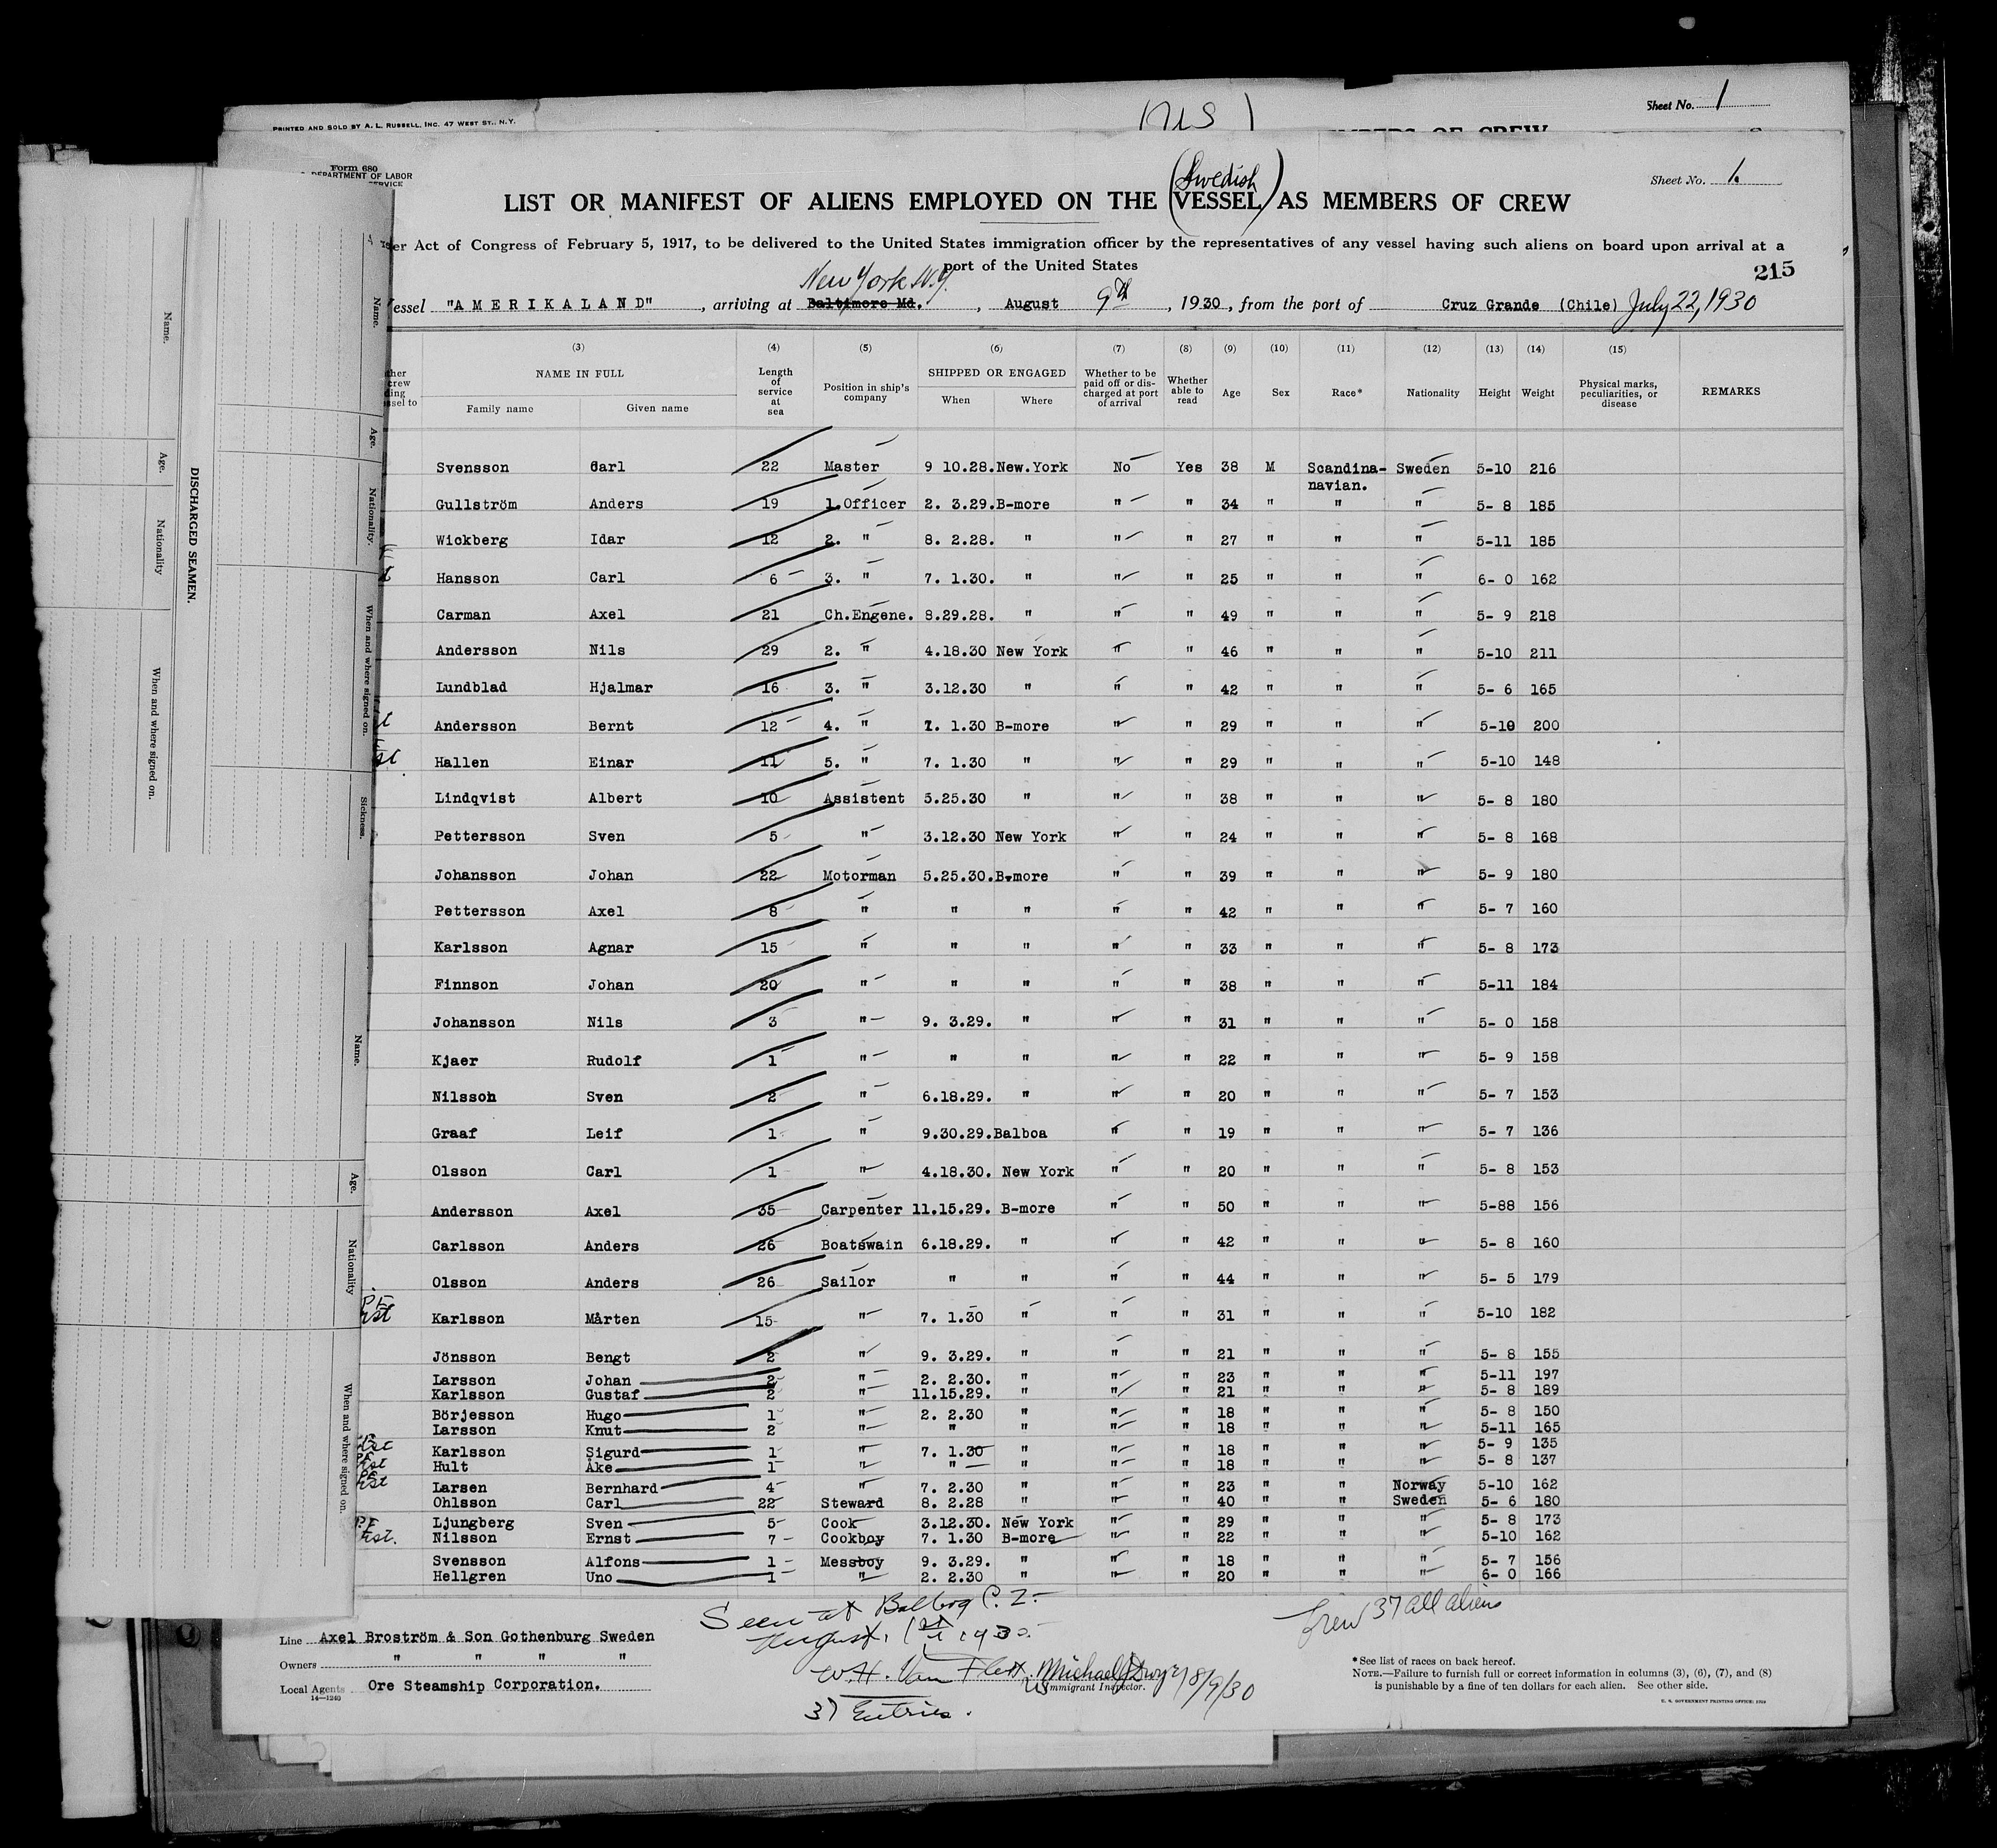 PRINTED AND SOLD BY A. L. RUSSELL, INC. 47 WEST ST., N.Y.
Sheet No. 1
Form 680
DEPARTMENT OF LABOR
SERVICE
Sheet No. 1.
(Swedish)
LIST OR MANIFEST OF ALIENS EMPLOYED ON THE VESSEL AS MEMBERS OF CREW
er Act of Congress of February 5, 1917, to be delivered to the United States immigration officer by the representatives of any vessel having such aliens on board upon arrival at a
port of the United States
215
New York N.Y.
essel "AMERIKALAND", arriving at Baltimore Md., August 9th, 1930, from the port of Cruz Grande (Chile) July 22, 1930
(3) (4) (5) (6) (7) (8) (9) (10) (11) (12) (13) (14) (15)
NAME IN FULL Length of service at sea Position in ship's company SHIPPED OR ENGAGED Whether to be paid off or discharged at port of arrival Whether able to read Age Sex Race* Nationality Height Weight Physical marks, peculiarities, or disease REMARKS
Family name Given name When Where
Svensson Carl 22 Master 9 10.28. New.York No Yes 38 M Scandina- Sweden 5-10 216
navian.
Gullström Anders 19 1.Officer 2. 3.29. B-more " " 34 " " " 5- 8 185
Wickberg Idar 12 2. " 8. 2.28. " " " 27 " " " 5-11 185
Hansson Carl 6 3. " 7. 1.30. " " " 25 " " " 6- 0 162
Carman Axel 21 Ch.Engene. 8.29.28. " " " 49 " " " 5- 9 218
Andersson Nils 29 2. " 4.18.30 New York " " 46 " " " 5-10 211
Lundblad Hjalmar 16 3. " 3.12.30 " " " 42 " " " 5- 6 165
Andersson Bernt 12 4. " 7. 1.30 B-more " " 29 " " " 5-10 200
Hallen Einar 11 5. " 7. 1.30 " " " 29 " " " 5-10 148
Lindqvist Albert 10 Assistent 5.25.30 " " " 38 " " " 5- 8 180
Pettersson Sven 5 " 3.12.30 New York " " 24 " " " 5- 8 168
Johansson Johan 22 Motorman 5.25.30. B-more " " 39 " " " 5- 9 180
Pettersson Axel 8 " " " " " 42 " " " 5- 7 160
Karlsson Agnar 15 " " " " " 33 " " " 5- 8 173
Finnson Johan 20 " " " " " 38 " " " 5-11 184
Johansson Nils 3 " 9. 3.29. " " " 31 " " " 5- 0 158
Kjaer Rudolf 1 " " " " " 22 " " " 5- 9 158
Nilsson Sven 2 " 6.18.29. " " " 20 " " " 5- 7 153
Graaf Leif 1 " 9.30.29. Balboa " " 19 " " " 5- 7 136
Olsson Carl 1 " 4.18.30. New York " " 20 " " " 5- 8 153
Andersson Axel 35 Carpenter 11.15.29. B-more " " 50 " " " 5-88 156
Carlsson Anders 26 Boatswain 6.18.29. " " " 42 " " " 5- 8 160
Olsson Anders 26 Sailor " " " " 44 " " " 5- 5 179
Karlsson Mårten 15 " 7. 1.30 " " " 31 " " " 5-10 182
Jönsson Bengt 2 " 9. 3.29. " " " 21 " " " 5- 8 155
Larsson Johan 2 " 2. 2.30. " " " 23 " " " 5-11 197
Karlsson Gustaf 2 " 11.15.29. " " " 21 " " " 5- 8 189
Börjesson Hugo 1 " 2. 2.30 " " " 18 " " " 5- 8 150
Larsson Knut 2 " " " " " 18 " " " 5-11 165
Karlsson Sigurd 1 " 7. 1.30 " " " 18 " " " 5- 9 135
Hult Åke 1 " " " " " 18 " " " 5- 8 137
Larsen Bernhard 4 " 7. 2.30 " " " 23 " " Norway 5-10 162
Ohlsson Carl 22 Steward 8. 2.28 " " " 40 " " Sweden 5- 6 180
Ljungberg Sven 5 Cook 3.12.30. New York " " 29 " " " 5- 8 173
Nilsson Ernst 7 Cookboy 7. 1.30 B-more " " 22 " " " 5-10 162
Svensson Alfons 1 Messboy 9. 3.29. " " " 18 " " " 5- 7 156
Hellgren Uno 1 " 2. 2.30 " " " 20 " " " 6- 0 166
Seen at Balboa C.Z.
August 1st 1930.
W.H. Van Fleet.
37 Entries.
Crew 37 all aliens
Line Axel Broström & Son Gothenburg Sweden
Owners " " " "
Local Agents Ore Steamship Corporation.
14—1240
Immigrant Inspector. 8/9/30
*See list of races on back hereof.
NOTE.—Failure to furnish full or correct information in columns (3), (6), (7), and (8)
is punishable by a fine of ten dollars for each alien. See other side.
U. S. GOVERNMENT PRINTING OFFICE:
DISCHARGED SEAMEN.
Name. Age. Nationality When and where signed on.
Name. Age. Nationality. When and where signed on. Sickness.
Name. Age. Nationality When and where signed on.